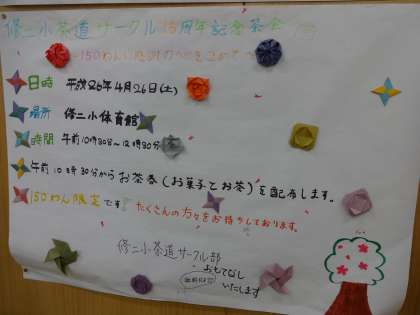 修二小茶道サークル15周年記念茶会
～150わんに感謝の心をこめて～
日時 平成26年4月26日(土)
場所 修二小体育館
時間 午前10時30分～12時30分
午前10時30分からお茶券(お菓子とお茶)を配布します。
150わん限定です!たくさんの方々をお待ちしております。
修二小茶道サークル部
おもてなし
いたします